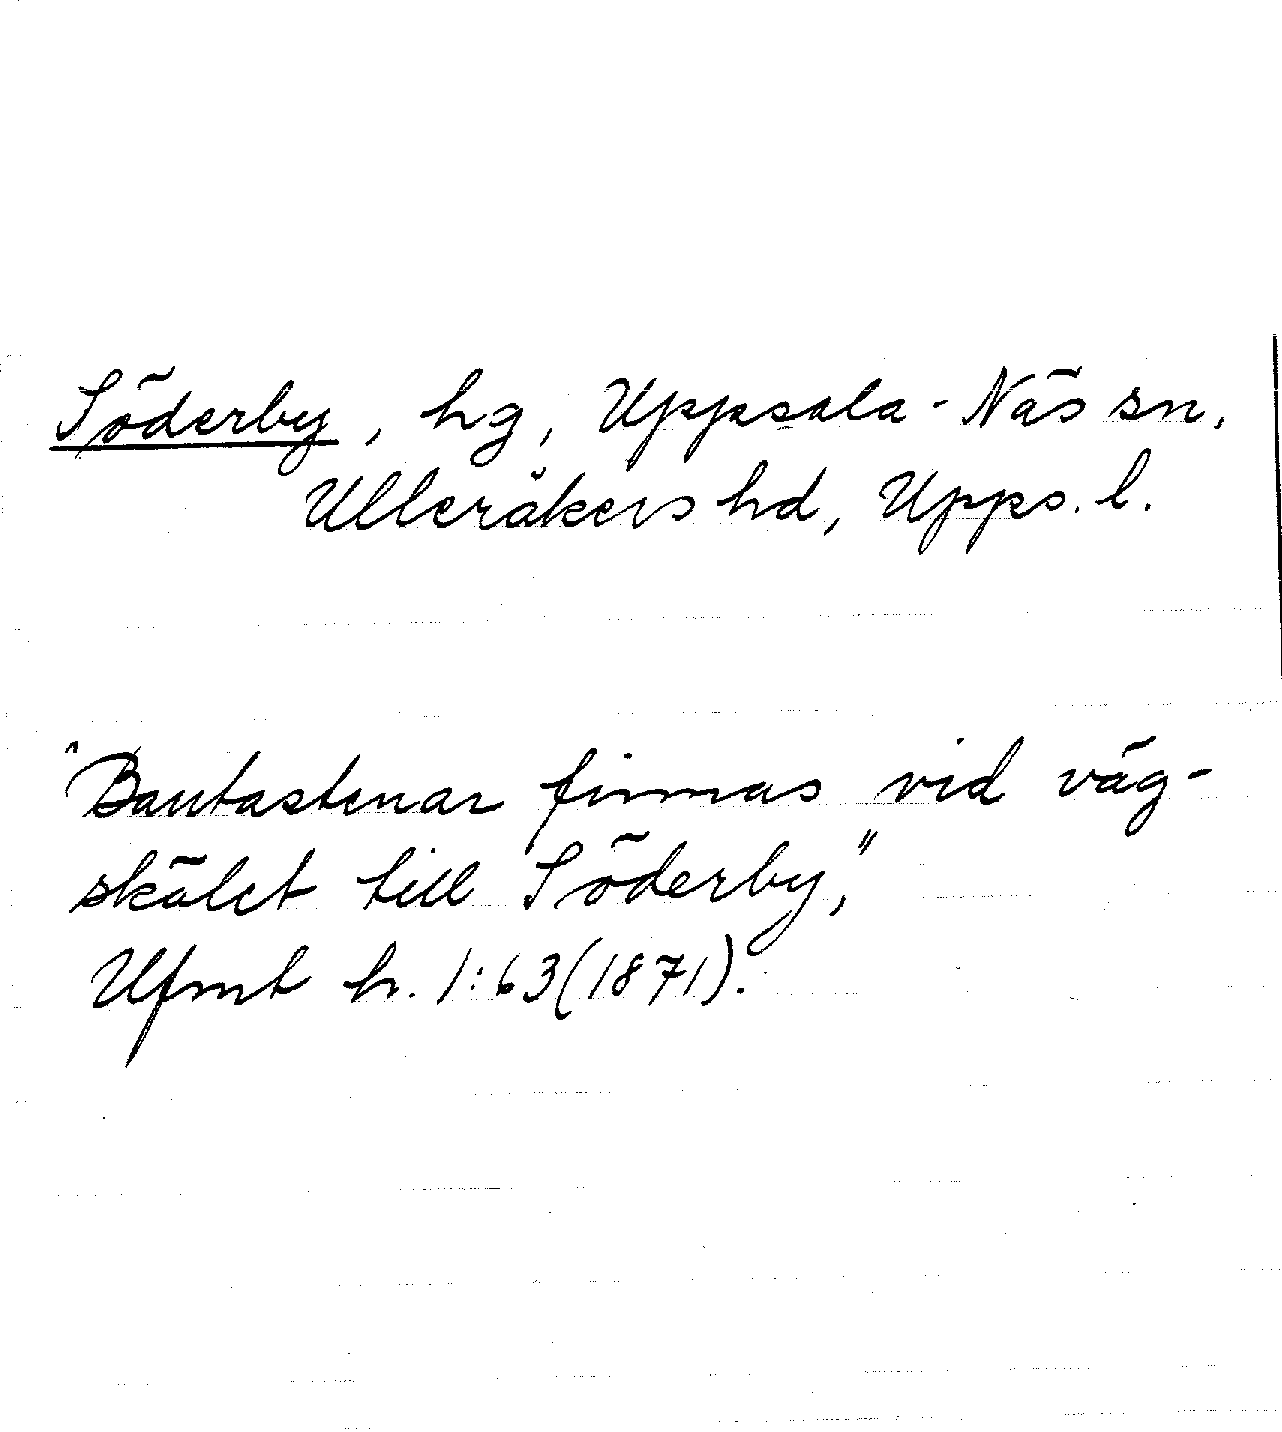 Söderby, hg, Uppsala-Näs sn,
Ulleråkers hd, Upps. l.
"Bautastenar finnas vid väg-
skälet till Söderby,"
Ufmt h. 1:63(1871).